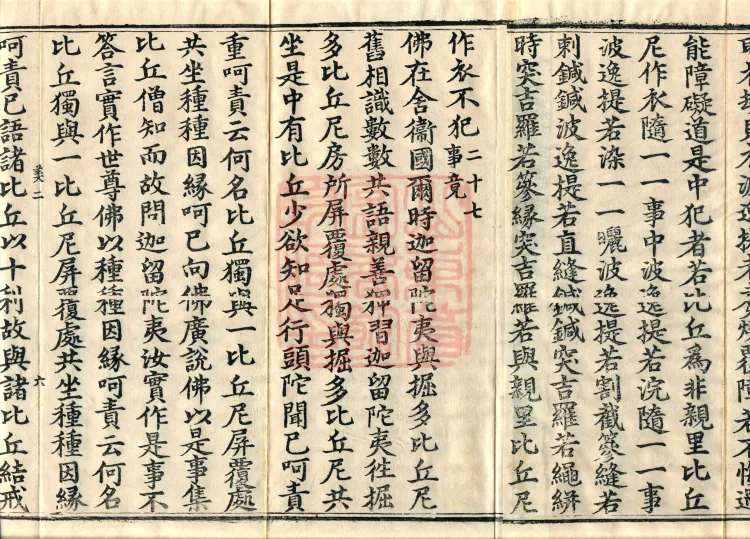 能障礙道是中犯者若比丘為非親里比丘
尼作衣隨一一事中波逸提若浣隨一一事
波逸提若染一一曬波逸提若割截篸縫若
刺鍼鍼波逸提若直縫鍼鍼突吉羅若繩絣
時突吉羅若篸緣突吉羅若與親里比丘尼
作衣不犯 二十七事竟
佛在舍衞國爾時迦留陀夷與掘多比丘尼
舊相識數數共語親善狎習迦留陀夷往掘
多比丘尼房所屏覆處獨與掘多比丘尼共
坐是中有比丘少欲知足行頭陀聞已呵責
重呵責云何名比丘獨與一比丘尼屏覆處
共坐種種因緣呵已向佛廣說佛以是事集
比丘僧知而故問迦留陀夷汝實作是事不
答言實作世尊佛以種種因緣呵責云何名
比丘獨與一比丘尼屏覆處共坐種種因緣
美二
六
呵責已語諸比丘以十利故與諸比丘結戒